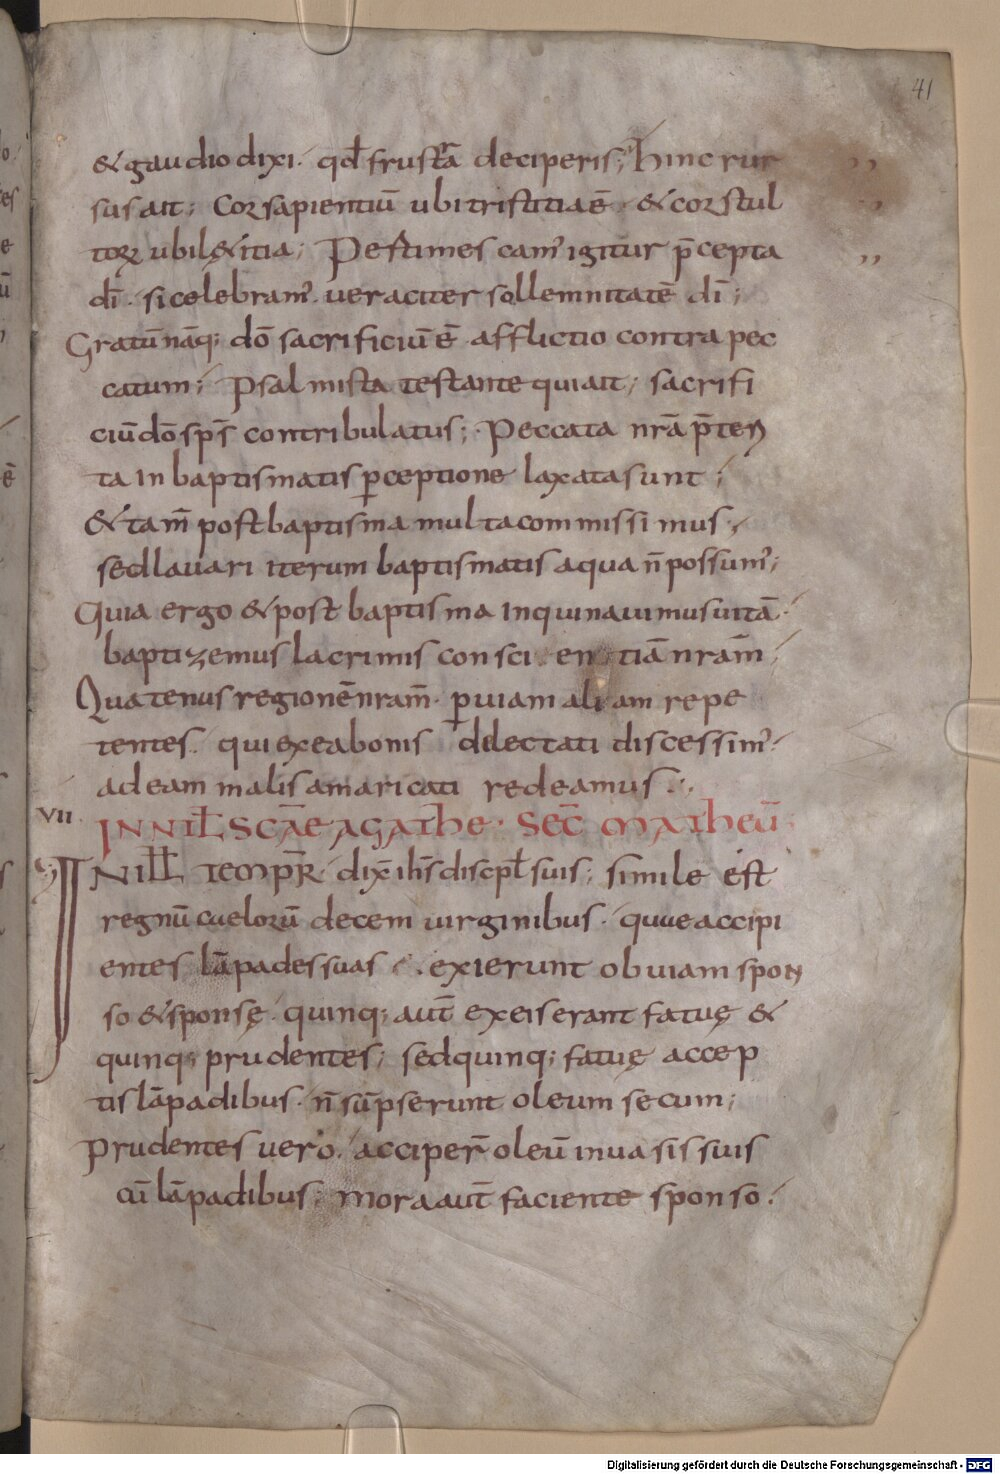 41
& gaudio dixi · qđ frustra deciperis; Hinc rur
sus ait; Cor sapientiū ubi tristitia ē · & cor stul
torꝝ ubi lę&itia; Pertimescam' igitur p̄cepta
dī · si celebram' veraciter sollemnitatē dī;
Gratū nāq; dō sacrificiū ē afflictio contra pec
catum; Psalmista testante qui ait; sacrifi
ciū dō sp̄s contribulatus; Peccata nr̄a p̄teri
ta in baptismatis ꝑceptione laxata sunt;
& tam̄ post baptisma multa commissimus;
sed lauari iterum baptismatis aqua n̄ possum';
Quia ergo & post baptisma inquinauimus uitā ·
baptizemus lacrimis conscientiā nr̄am̄;
Quatenus regionē nr̄am̄ · ꝑ uiam aliam repe
tentes · qui ex ea bonis delectati discessim'
ad eam malis amaricati redeamus ·
VII IN NAT̄L SC̄AE AGATHE · SEC̄ MATHEŪ
IN ILL̄ TEMPR̄ · dix̄ ih̄s discipl̄ suis; simile est
regnū caelorū decem uirginibus · quae accipi
entes lāpades suas · exierunt obuiam spon
so & sponsę · quinq; aut̄ ex eis erant fatuę &
quinq; prudentes; sed quinq; fatuę accep
tis lāpadibus · n̄ sūpserunt oleum secum;
Prudentes uero · acciper̄ oleū in uasis suis
cū lāpadibus; Mora aut̄ faciente sponso ·
Digitalisierung gefördert durch die Deutsche Forschungsgemeinschaft - DFG